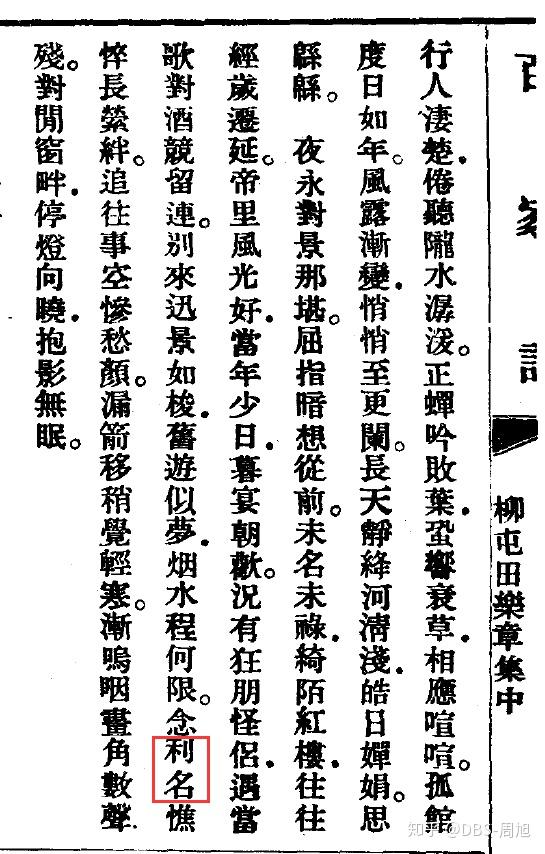 柳屯田樂章集中
行人淒楚.倦聽隴水潺湲。正蟬吟敗葉.蛩響衰草.相應喧喧。孤館
度日如年。風露漸變.悄悄至更闌。長天靜絳河清淺.皓日嬋娟。思
緜緜。　夜永對景那堪。屈指暗想從前。未名未祿.綺陌紅樓.往往
經歲遷延。帝里風光好.當年少日.暮宴朝歡。況有狂朋怪侶.遇當
歌對酒競留連。別來迅景如梭.舊遊似夢.烟水程何限。念利名憔
悴長縈絆。追往事空慘愁顏。漏箭移稍覺輕寒。漸嗚咽畫角數聲.
殘。對閒窗畔.停燈向曉.抱影無眠。
知乎 @DBS-周旭